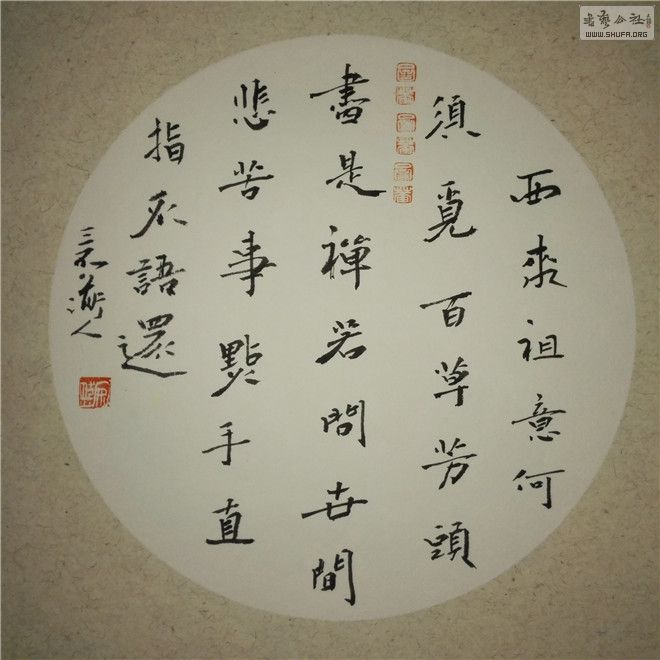 西來祖意何
須覓百草芳頭
盡是禪若問世間
悲苦事點手直
指不語還
WWW.SHUFA.ORG